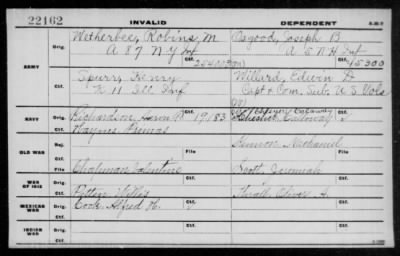 22162
INVALID
DEPENDENT
Wetherbee, Robins, M
Osgood, Joseph B
Orig.
A 87 N.Y Inf
A 5 N H Inf
Ctf.
45300
ARMY
Spurr, Henry
Willard, Edwin D
Orig.
K 11 Ill Inf
Capt & Com. Sub. U S Vols
Ctf.
NAVY
Orig.
Richardson, Aaron
19183
Calloway
Ctf.
Haynes, Thomas
OLD WAR
Rej.
Nathaniel
File
File
Chapman Valentine
Scott, Jeremiah
WAR OF 1812
Orig.
Potter, Willis
Thrall, Oliver A.
Ctf.
MEXICAN WAR
Orig.
Cook, Alfred H.
Ctf.
INDIAN WAR
Orig.
Ctf.
Ctf.